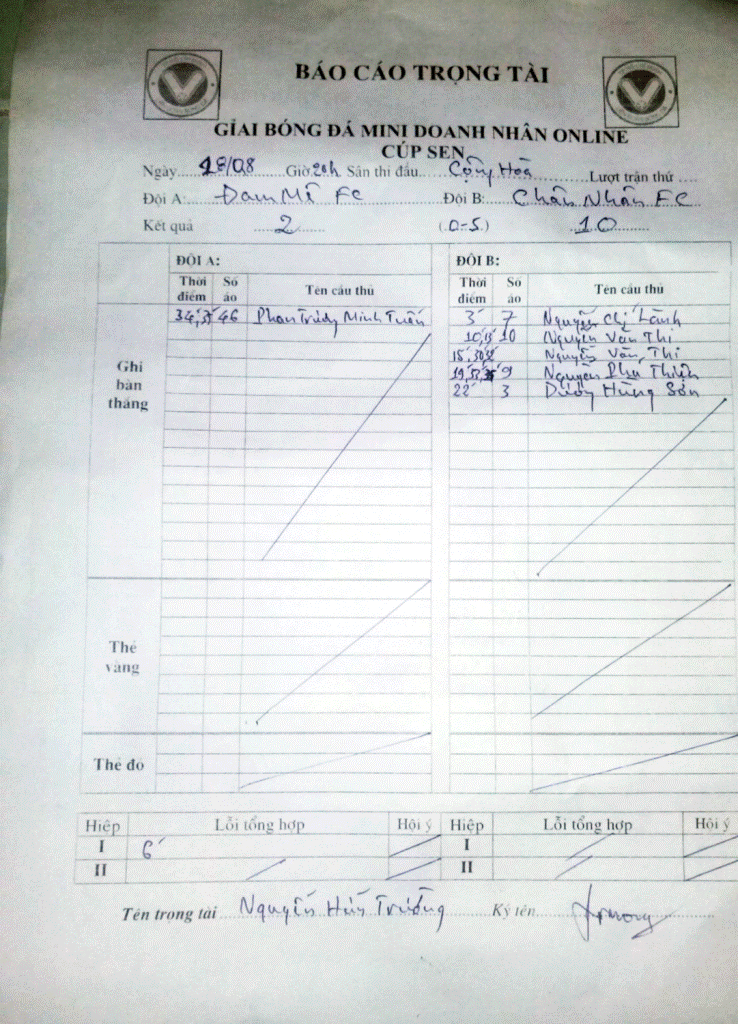 BÁO CÁO TRỌNG TÀI
GIẢI BÓNG ĐÁ MINI DOANH NHÂN ONLINE
CÚP SEN
Ngày 18/08 Giờ 20h Sân thi đấu Cộng Hòa Lượt trận thứ
Đội A: Đam Mê FC Đội B: Chân Nhân FC
Kết quả 2 (0-5) 10
ĐỘI A: ĐỘI B:
Thời điểm Số áo Tên cầu thủ Thời điểm Số áo Tên cầu thủ
Ghi bàn thắng
46 Minh Tuấn 3' 7 Nguyễn Chí Lành
10 Nguyễn Văn Thi
Nguyễn Văn Thi
9 Nguyễn Phú Thiện
22' 3 Hùng Sơn
Thẻ vàng
Thẻ đỏ
Hiệp Lỗi tổng hợp Hội ý Hiệp Lỗi tổng hợp Hội ý
I 6' I
II II
Tên trọng tài Nguyễn Trường Ký tên